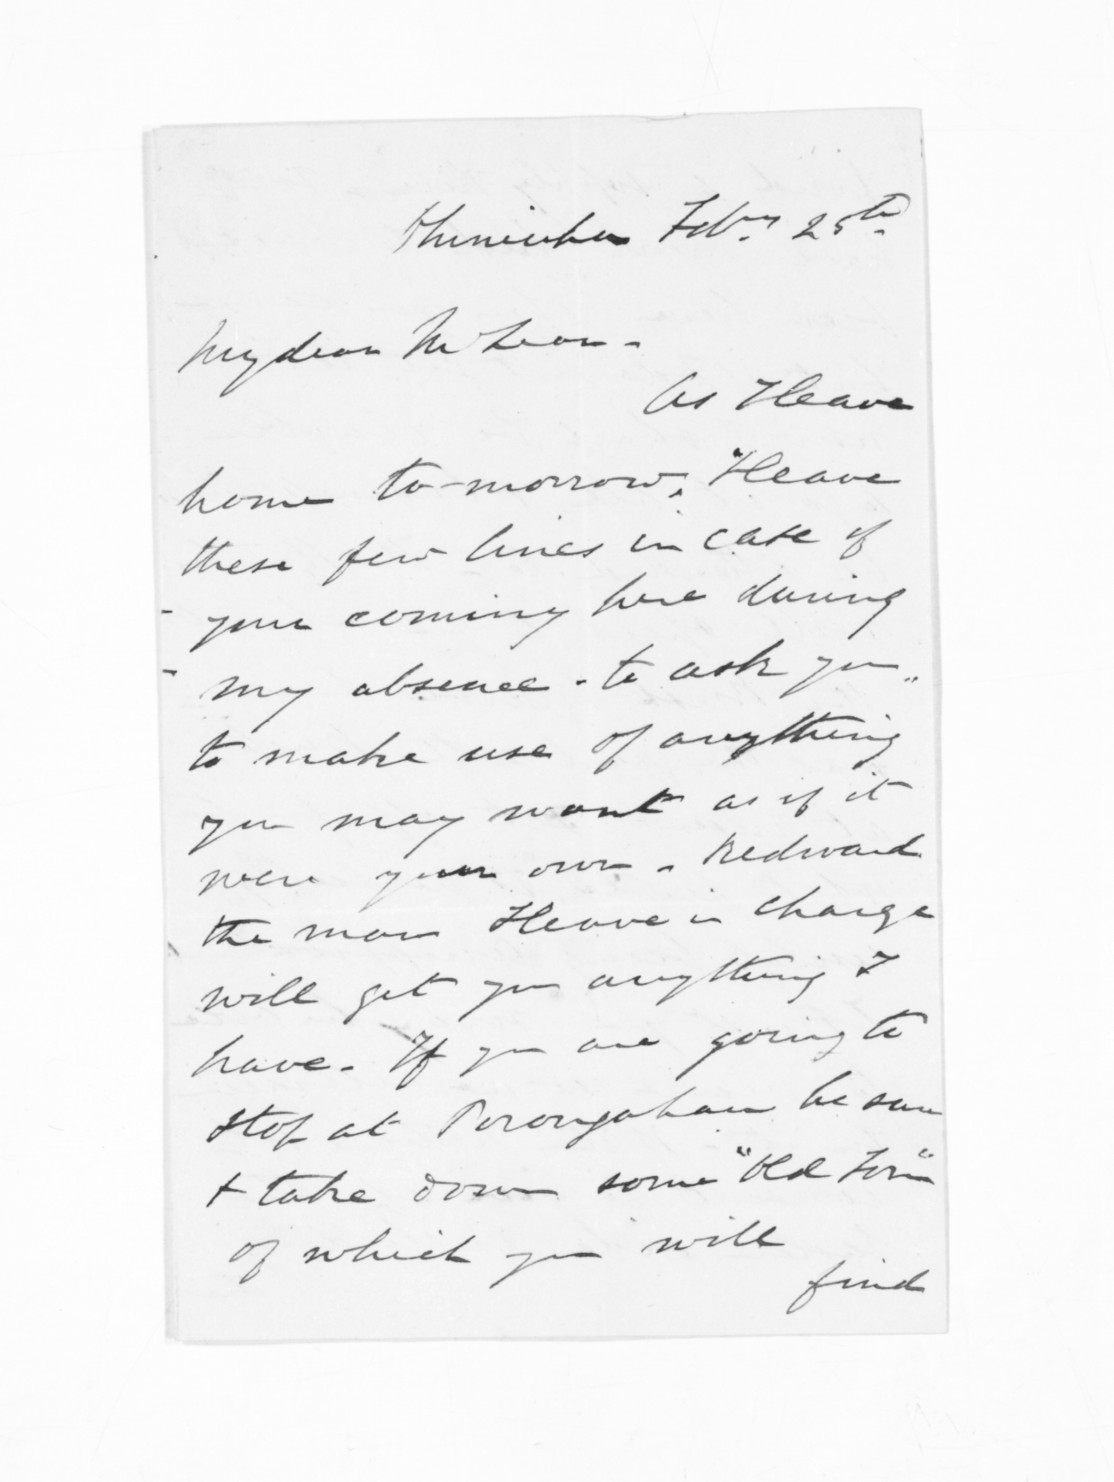 Feby 25th
My dear McLean -
As I leave
home to-morrow, I leave
these few lines in case of
your coming here during
my absence - to ask you
to make use of anything
you may want as if it
were your own - Redward
the man I leave in charge
will get you anything I
have - If you are going to
stop at Porongahau be sure
& take down some "Old Tom"
of which you will
find